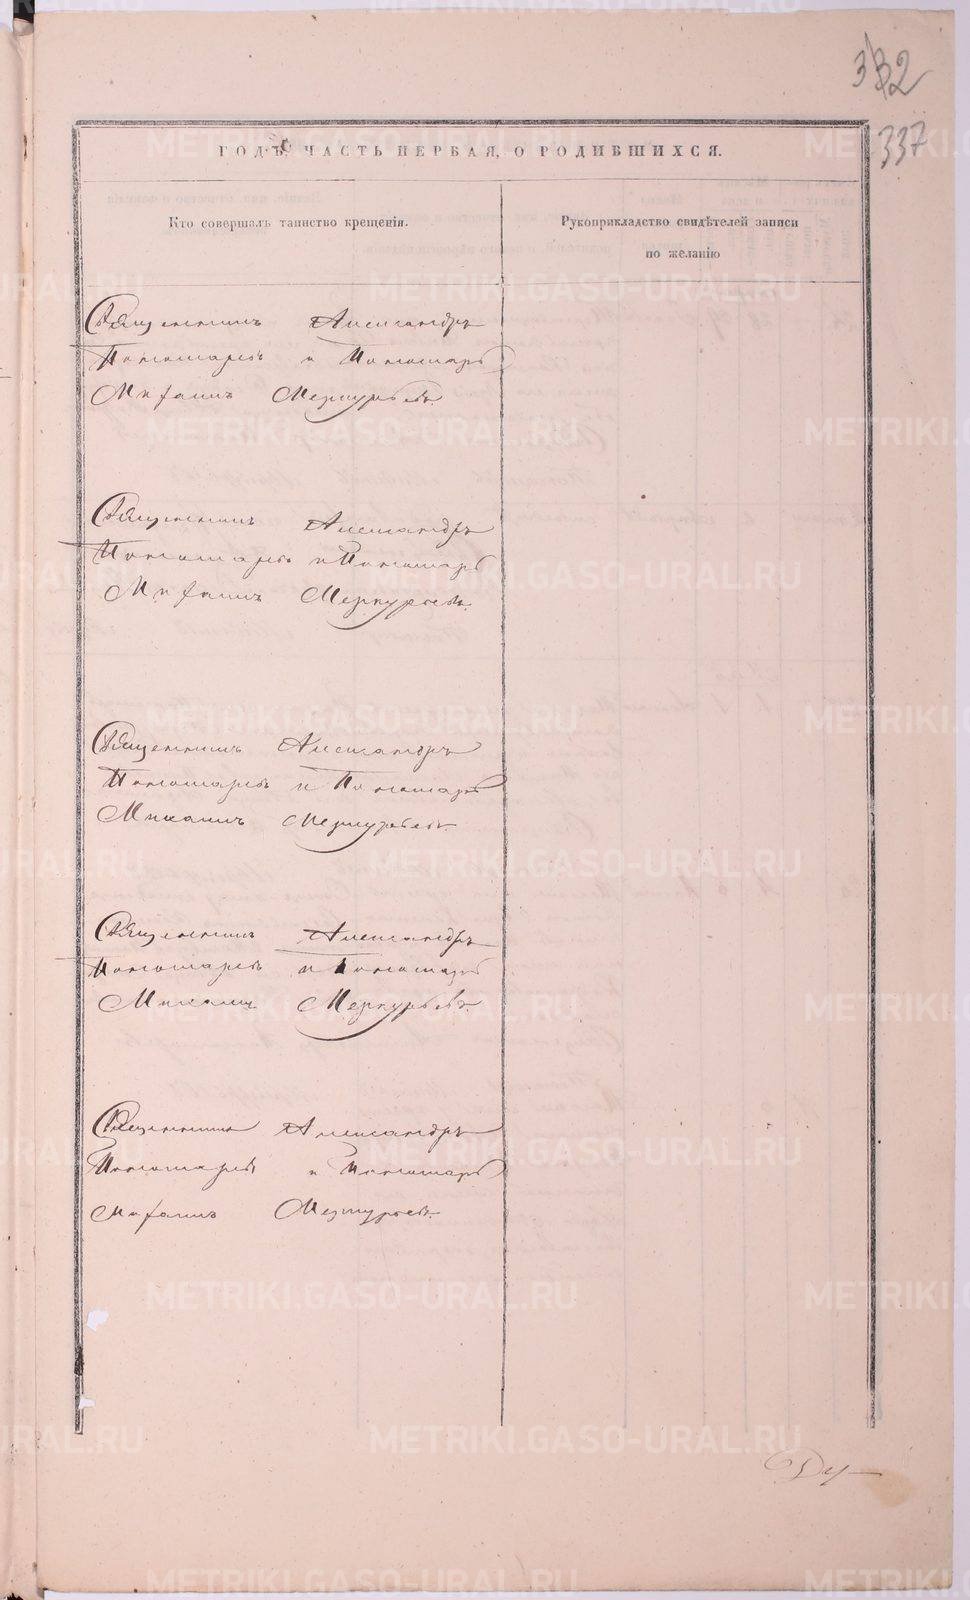 332
337
ГОДЪ ЧАСТЬ ПЕРВАЯ, О РОДИВШИХСЯ.
Кто совершалъ таинство крещенія.
Рукоприкладство свидѣтелей записи
по желанію
Священникъ Александръ
Пономаревъ и Пономарь
Михаилъ Меркурьевъ.
Священникъ Александръ
Пономаревъ и Пономарь
Михаилъ Меркурьевъ.
Священникъ Александръ
Пономаревъ и Пономарь
Михаилъ Меркурьевъ
Священникъ Александръ
Пономаревъ и Пономарь
Михаилъ Меркурьевъ.
Священникъ Александръ
Пономаревъ и Пономарь
Михаилъ Меркурьевъ.
METRIKI.GASO-URAL.RU